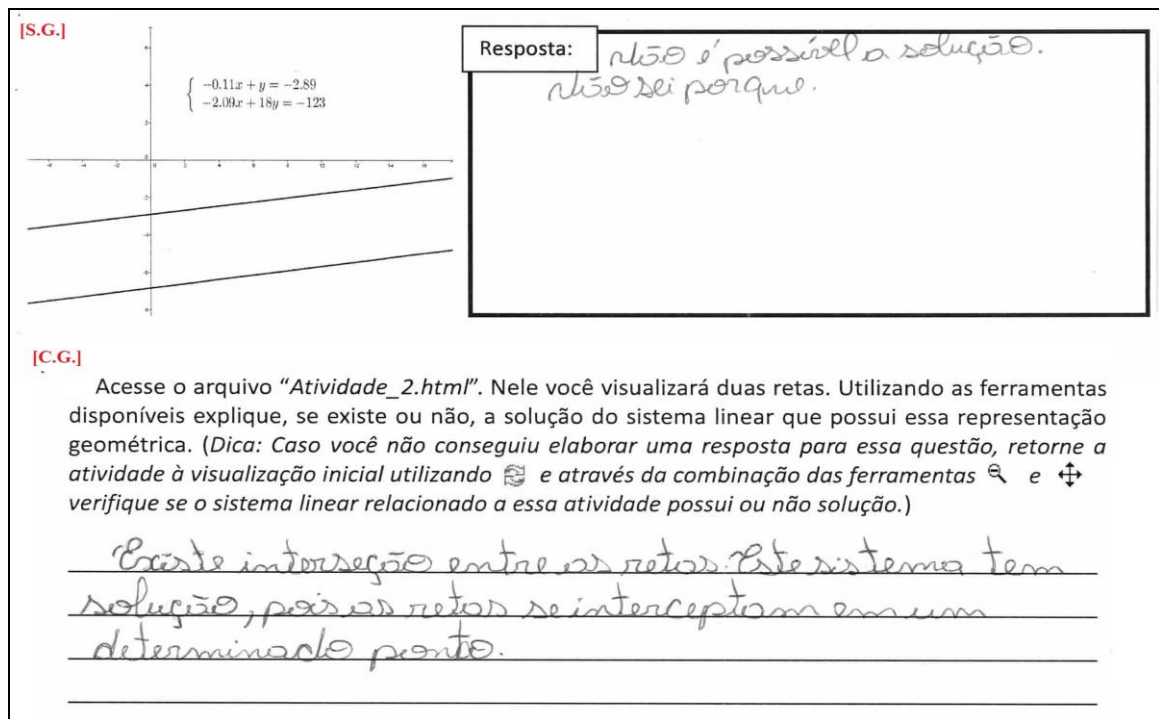 [S.G.]
{ −0.11x + y = −2.89
−2.09x + 18y = −123
Resposta:
Não é possível a solução.
Não sei porque.
-6 -4 -2 0 2 4 6 8 10 12 14 16
[C.G.]
Acesse o arquivo “Atividade_2.html”. Nele você visualizará duas retas. Utilizando as ferramentas
disponíveis explique, se existe ou não, a solução do sistema linear que possui essa representação
geométrica. (Dica: Caso você não conseguiu elaborar uma resposta para essa questão, retorne a
atividade à visualização inicial utilizando e através da combinação das ferramentas e
verifique se o sistema linear relacionado a essa atividade possui ou não solução.)
Existe interseção entre as retas. Este sistema tem
solução, pois as retas se interceptam em um
determinado ponto.